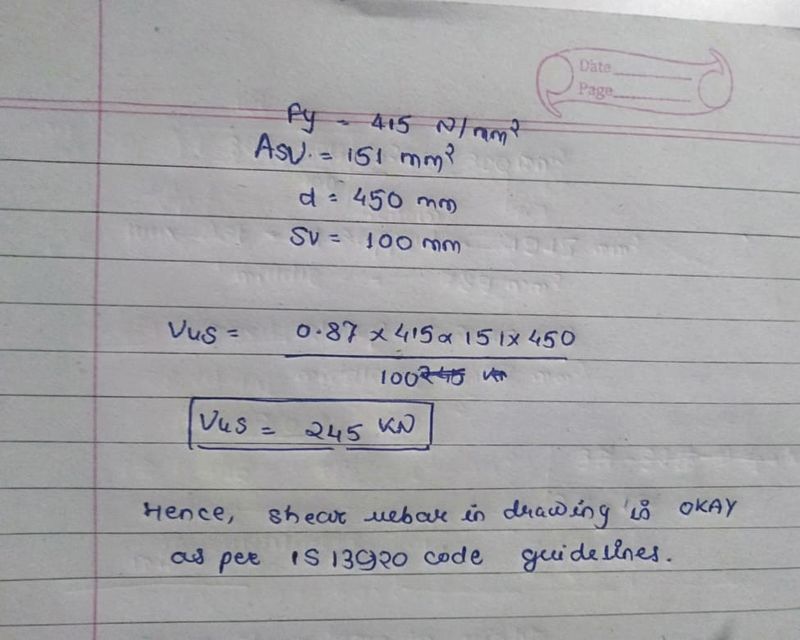 Date
Page
Fy = 415 N/mm²
Asv. = 151 mm²
d = 450 mm
Sv = 100 mm
Vus = 0.87 x 415 x 151 x 450
100
Vus = 245 KN
Hence, shear rebar in drawing is OKAY
as per IS 13920 code guidelines.